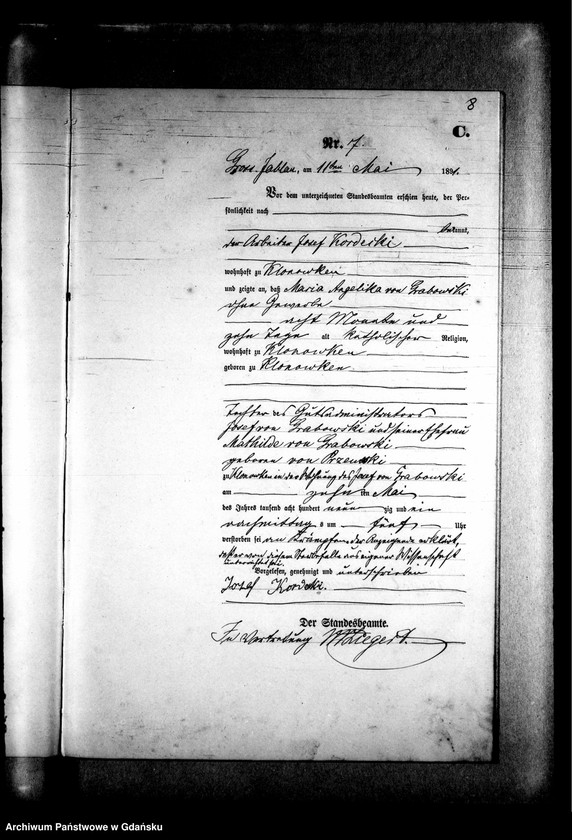 8
C.
Nr. 7.
Gross Jablau, am 11ten Mai 1891.
Vor dem unterzeichneten Standesbeamten erschien heute, der Per-
sönlichkeit nach
bekannt,
der Arbeiter Josef Kordecki
wohnhaft zu Klonowken
und zeigte an, daß Maria Angelika von Grabowski
ohne Gewerbe
acht Monate und
zehn Tage alt katholischer Religion,
wohnhaft zu Klonowken
geboren zu Klonowken
Tochter des Gutsadministrators
Josef von Grabowski und seiner Ehefrau
Mathilde von Grabowski
geborene von
zu Klonowken in der Wohnung des Josef von Grabowski
am zehnten Mai
des Jahres tausend acht hundert neunzig und ein
nachmittags um fünf Uhr
verstorben sei, an Krämpfen, der Anzeigende erklärt,
daß er von diesem Sterbefalle aus eigener Wissenschaft
unterrichtet sei.
Vorgelesen, genehmigt und unterschrieben
Josef Kordecki.
Der Standesbeamte.
In Vertretung
Archiwum Państwowe w Gdańsku